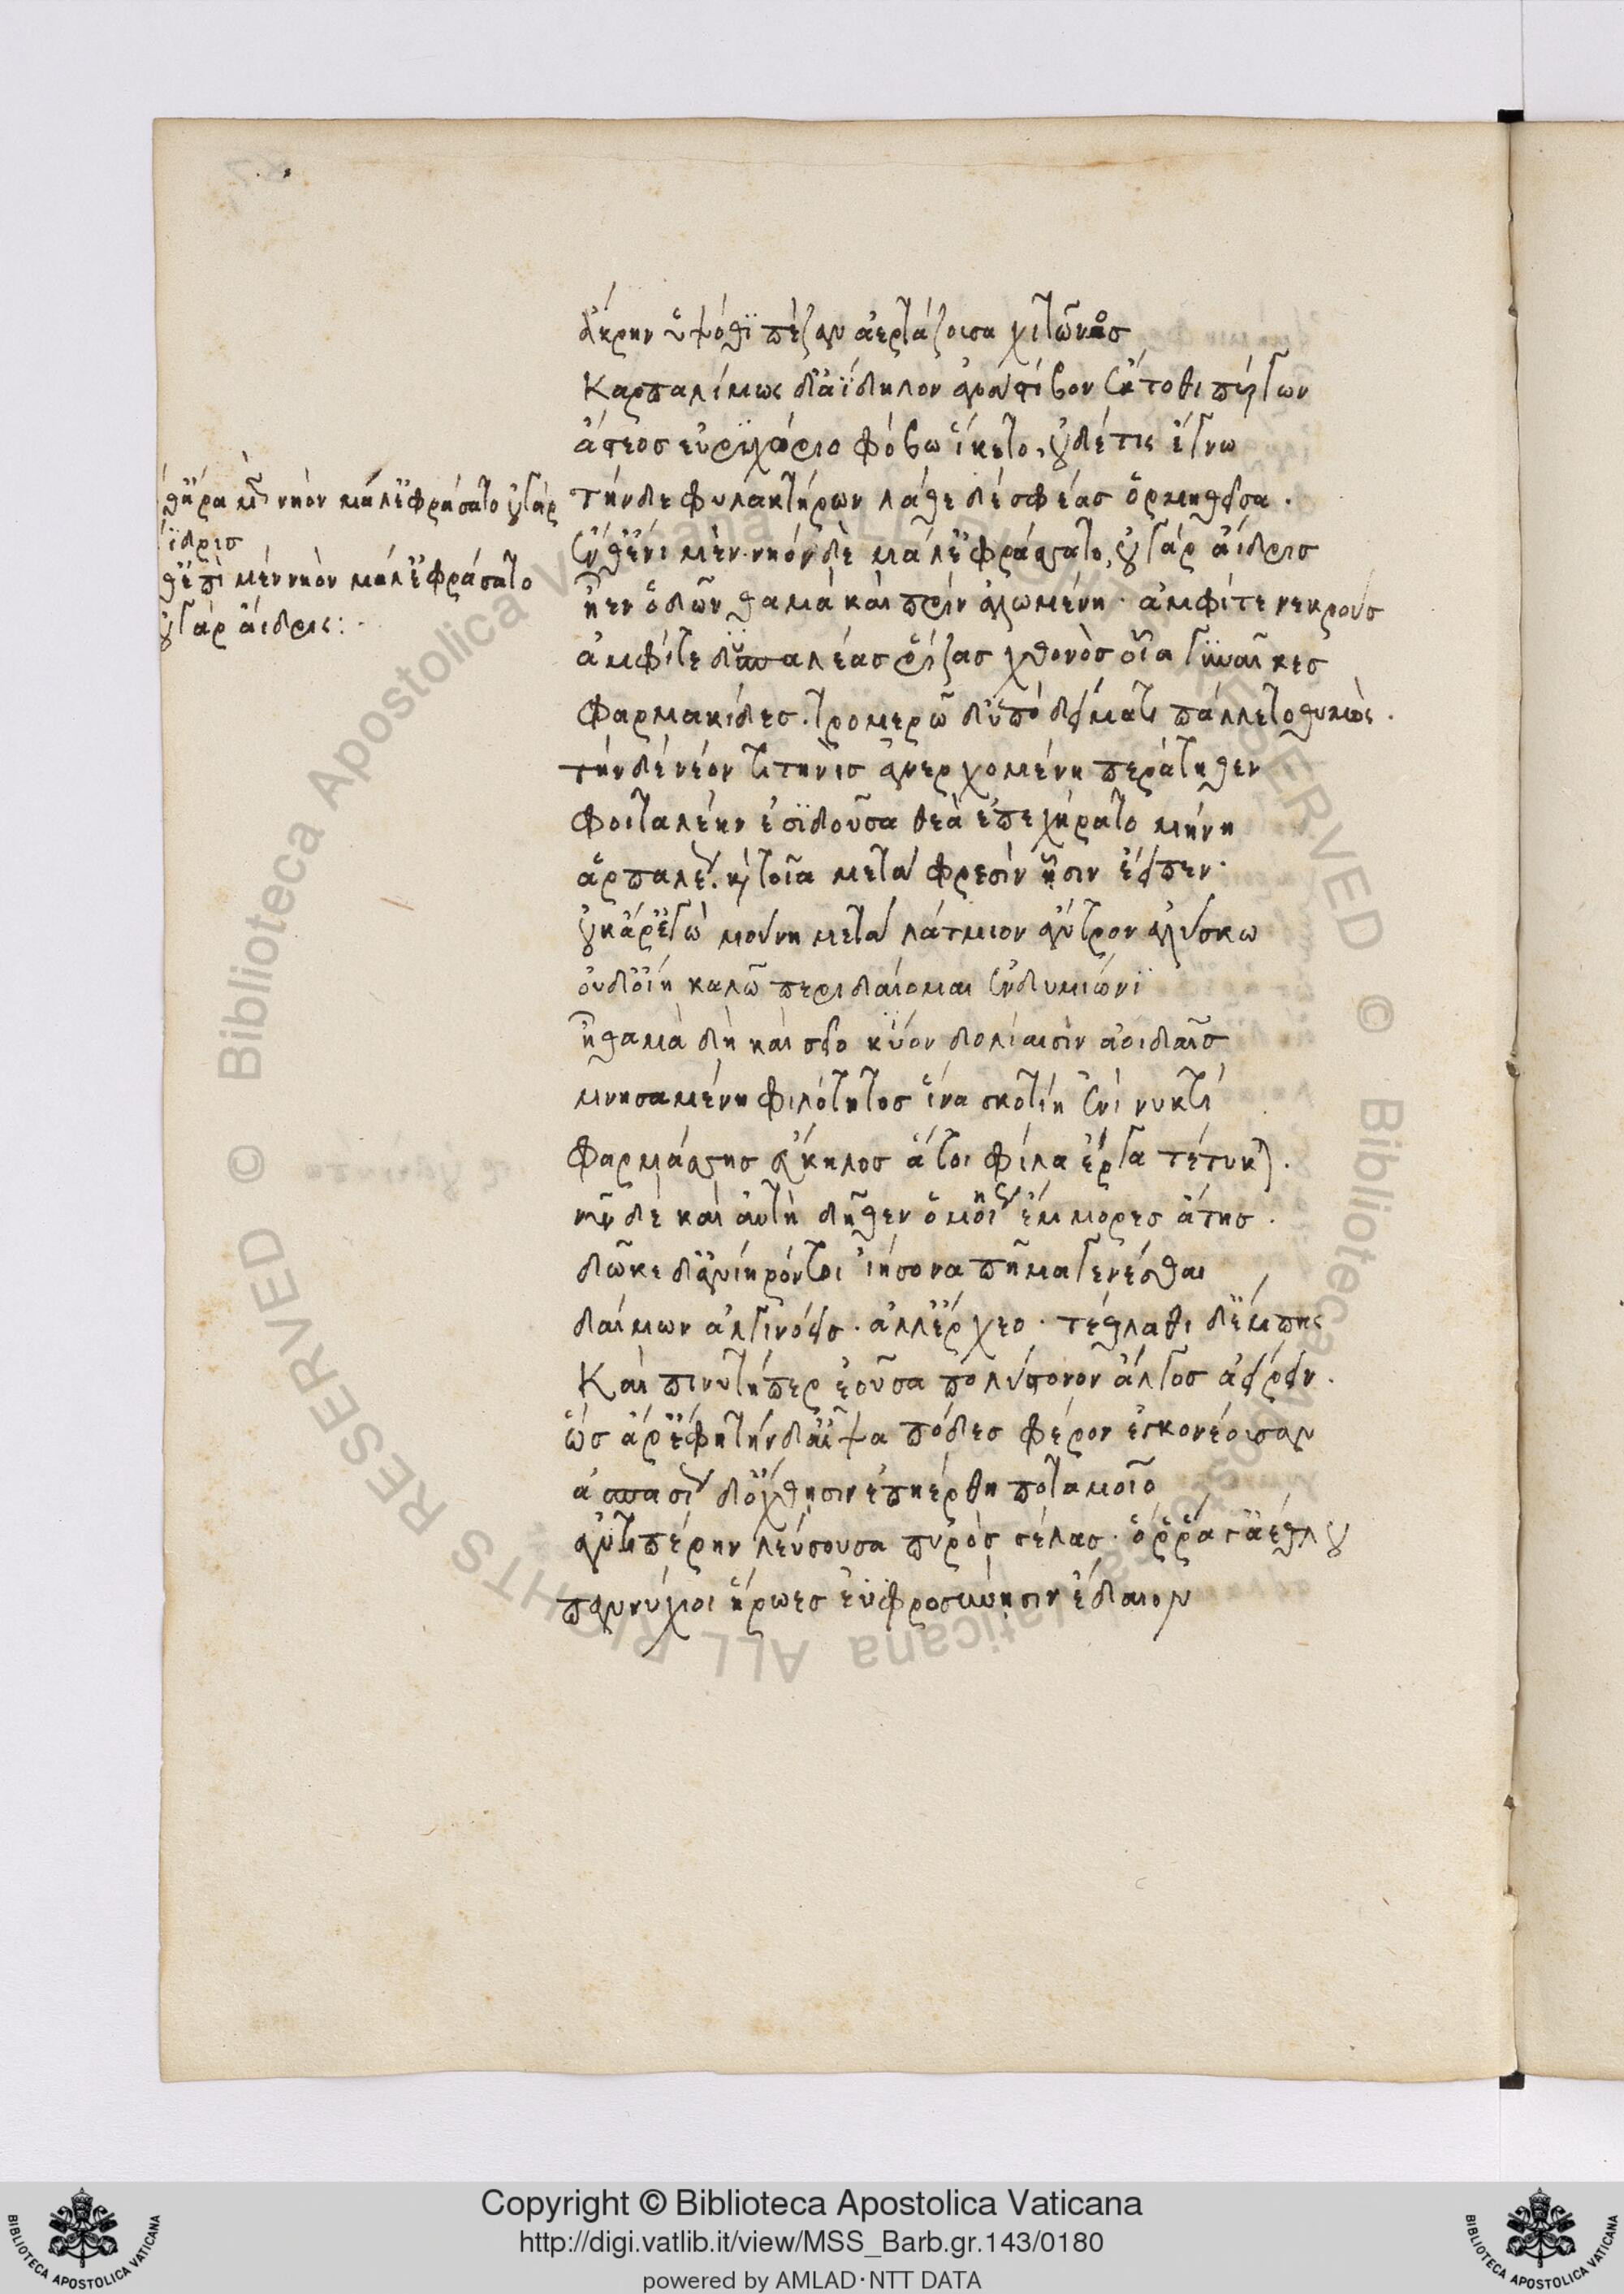 ἄκρην ὑψόθϊ πέζαν ἀερτάζοισα χιτῶνος
καρπαλίμως δ' ἀΐδηλον ἀνὰ στίβον ἔκτοθι πύργων
ἄστεος εὐρυχόροιο φόβω ἵκετο, οὐδέ τις ἔγνω
τήνδε φυλακτήρων λάθε δέ σφέας ὁρμηθεῖσα.
ἔνθ' ἔνι μὲν νηόνδε μάλ' ἐφράσσατο, οὐ γὰρ ἄιδρισ
ἦεν ὁδῶν θαμὰ καὶ πρὶν ἀλωμένη. ἀμφί τε νεκροὺς
ἀμφί τε δυσπαλέας ῥίζας χθονὸς οἷα γυναῖκες
φαρμακίδες. τρομερῶ δ' ὑπὸ δείματι πάλλετο θυμός.
τὴν δὲ νέον τιτηνὶς ἀνερχομένη περάτηθεν
φοιταλέην ἐσϊδοῦσα θεὰ ἐπεχήρατο μήνη
ἁρπαλέως. καὶ τοῖα μετὰ φρεσὶν ᾗσιν ἔειπεν.
οὐκ ἄρ' ἐγὼ μούνη μετὰ λάτμιον ἄντρον ἀλύσκω
οὐδ' οἴη καλῶ περιδαίομαι ἐνδυμιώνϊ
ἦ θαμὰ δὴ καὶ σεῖο κύον δολίαισιν ἀοιδαῖς
μνησαμένη φιλότητος ἵνα σκοτίη ἐνὶ νυκτὶ
φαρμάσσης εὔκηλος ἅ τοι φίλα ἔργα τέτυκται.
νῦν δὲ καὶ αὐτὴ δῆθεν ὁμοίης ἔμμορες ἄτης.
δῶκε δ' ἀνιηρόν τοι ἰήσονα πῆμα γενέσθαι
δαίμων ἀλγινόεις. ἀλλ' ἔρχεο. τέτλαθι δ' ἔμπης
καὶ πινυτή περ ἐοῦσα πολύστονον ἄλγος ἀείρειν.
ὣς ἄρ' ἔφη τὴν δ' αἶψα πόδες φέρον ἐγκονέουσαν
ἀσπασίως δ' ὄχθησιν ἐπηέρθη ποταμοῖο
ἀντιπέρην λεύσουσα πυρὸς σέλας. ὅ ῥῥά τ' ἀέθλου
παννύχιοι ἥρωες ἐϋφροσύνησιν ἔδαιον
θ' ἄρα μὲν νηὸν μάλ' ἐφράσατο οὐ γὰρ
ἴδρισ
θ' ἐπὶ μὲν νηὸν μάλ' ἐφράσατο
οὐ γὰρ ἄιδρις:
Copyright © Biblioteca Apostolica Vaticana
http://digi.vatlib.it/view/MSS_Barb.gr.143/0180
powered by AMLAD·NTT DATA